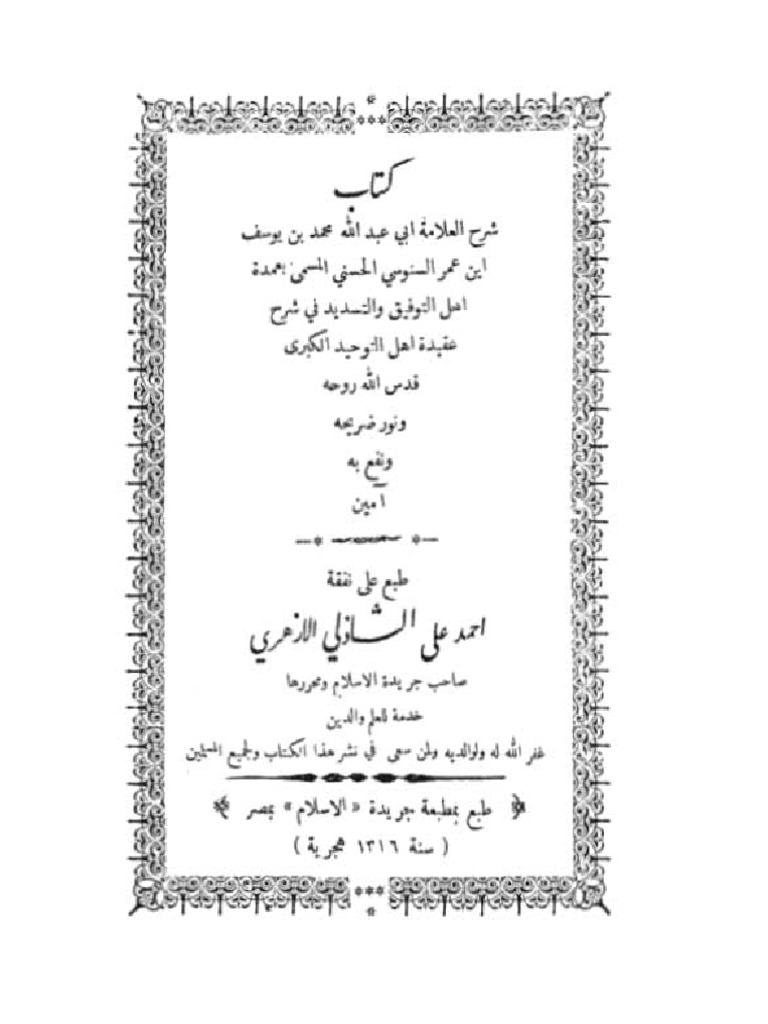 كتاب
شرح العلامة ابي عبد الله محمد بن يوسف
ابن عمر السنوسي الحسني المسمى بعمدة
اهل التوفيق والتسديد في شرح
عقيدة اهل التوحيد الكبرى
قدس الله روحه
ونور ضريحه
ونفع به
آمين
طبع على نفقة
احمد علي الشاذلي الازهري
صاحب جريدة الاسلام ومحررها
خدمة للعلم والدين
غفر الله له ولوالديه ولمن سعى في نشر هذا الكتاب ولجميع المسلمين
طبع بمطبعة جريدة «الاسلام» بمصر
( سنة ١٣١٦ هجرية )